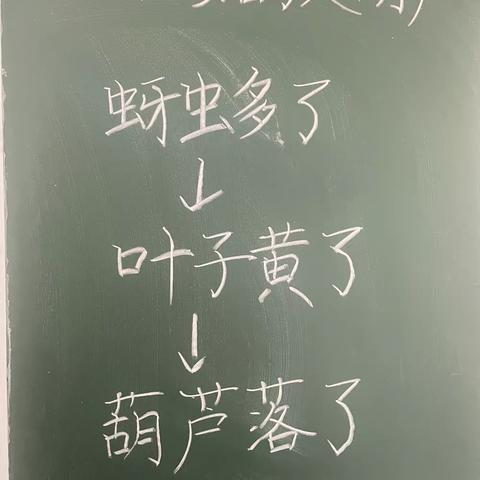 蚜虫多了
↓
叶子黄了
↓
葫芦落了